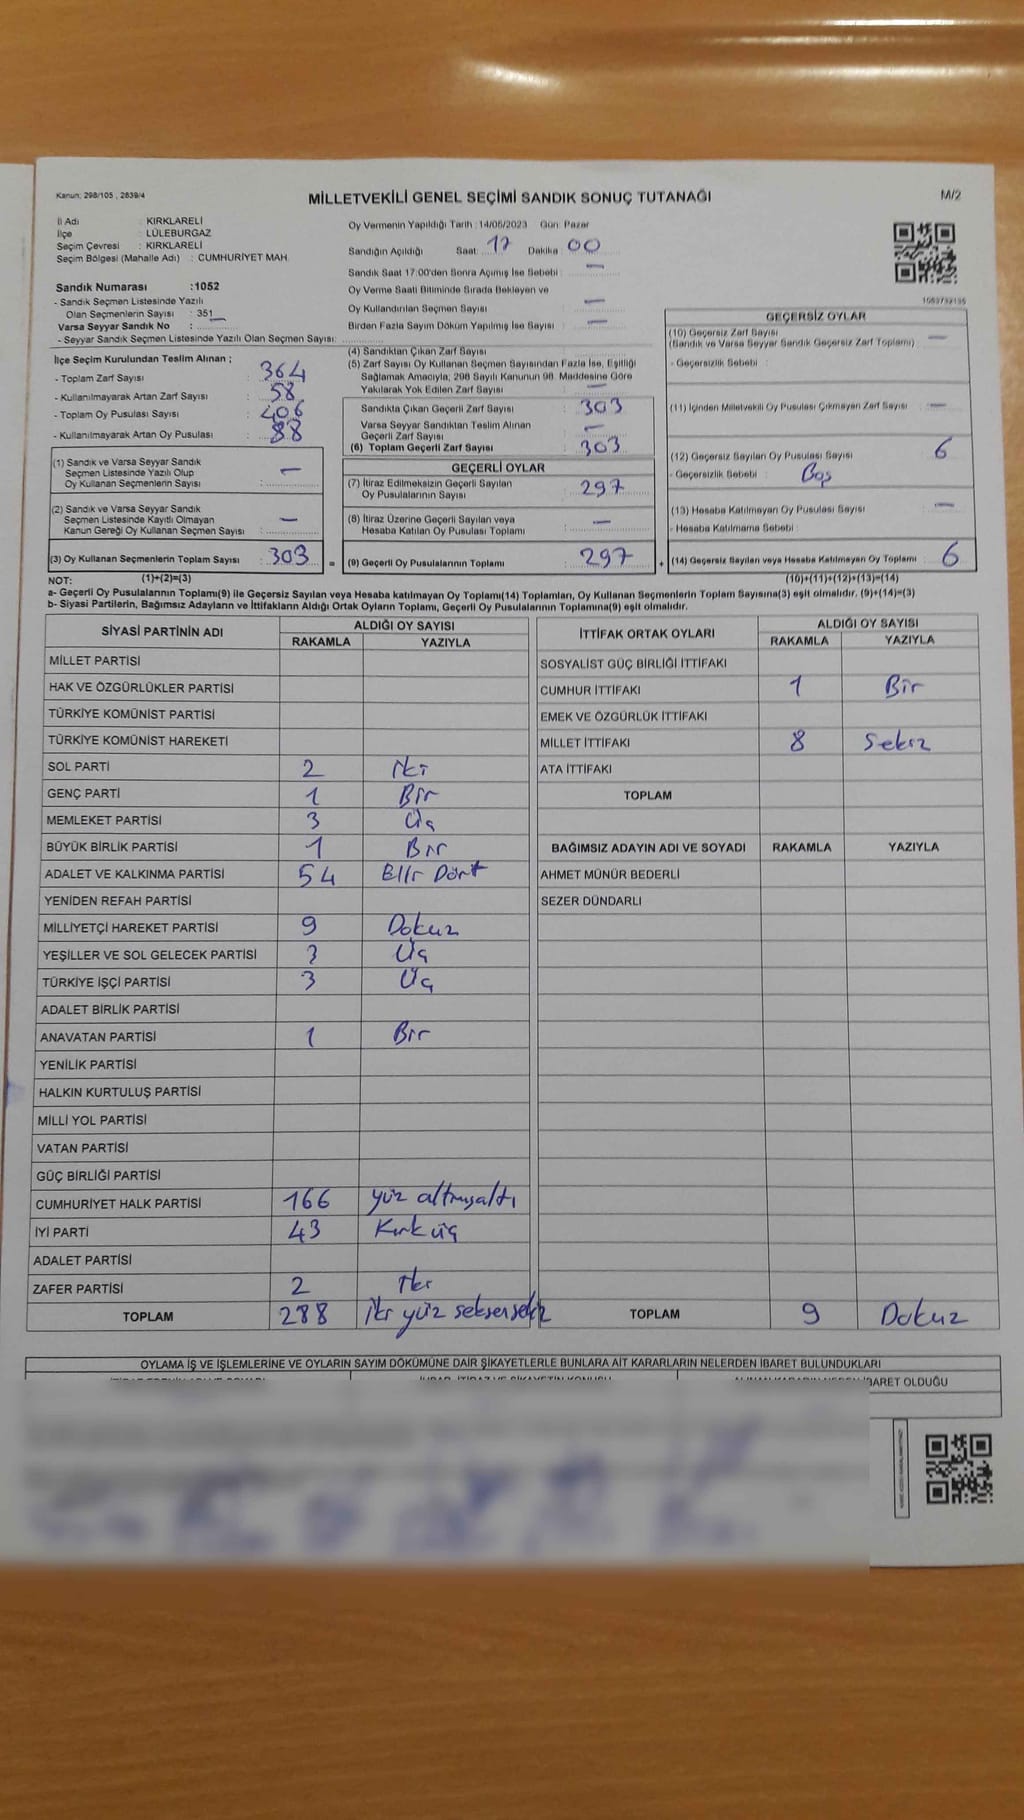 Kanun: 298/105 , 2839/4
MİLLETVEKİLİ GENEL SEÇİMİ SANDIK SONUÇ TUTANAĞI
M/2
İl Adı : KIRKLARELİ
İlçe : LÜLEBURGAZ
Seçim Çevresi : KIRKLARELİ
Seçim Bölgesi (Mahalle Adı) : CUMHURİYET MAH.
Sandık Numarası :1052
- Sandık Seçmen Listesinde Yazılı
Olan Seçmenlerin Sayısı : 351
Varsa Seyyar Sandık No :
- Seyyar Sandık Seçmen Listesinde Yazılı Olan Seçmen Sayısı:
Oy Vermenin Yapıldığı Tarih : 14/05/2023 Gün: Pazar
Sandığın Açıldığı Saat: 17 Dakika: 00
Sandık Saat 17:00'den Sonra Açımış İse Sebebi : —
Oy Verme Saati Bitiminde Sırada Bekleyen ve
Oy Kullandırılan Seçmen Sayısı : —
Birden Fazla Sayım Döküm Yapılmış İse Sayısı : —
İlçe Seçim Kurulundan Teslim Alınan ;
- Toplam Zarf Sayısı : 364
- Kullanılmayarak Artan Zarf Sayısı : 58
- Toplam Oy Pusulası Sayısı : 406
- Kullanılmayarak Artan Oy Pusulası : 88
(1) Sandık ve Varsa Seyyar Sandık
Seçmen Listesinde Yazılı Olup
Oy Kullanan Seçmenlerin Sayısı : —
(2) Sandık ve Varsa Seyyar Sandık
Seçmen Listesinde Kayıtlı Olmayan
Kanun Gereği Oy Kullanan Seçmen Sayısı : —
(3) Oy Kullanan Seçmenlerin Toplam Sayısı : 303
(4) Sandıktan Çıkan Zarf Sayısı :
(5) Zarf Sayısı Oy Kullanan Seçmen Sayısından Fazla İse, Eşitliği
Sağlamak Amacıyla, 298 Sayılı Kanunun 98. Maddesine Göre
Yakılarak Yok Edilen Zarf Sayısı : —
Sandıkta Çıkan Geçerli Zarf Sayısı : 303
Varsa Seyyar Sandıktan Teslim Alınan
Geçerli Zarf Sayısı : —
(6) Toplam Geçerli Zarf Sayısı : 303
GEÇERLİ OYLAR
(7) İtiraz Edilmeksizin Geçerli Sayılan
Oy Pusulalarının Sayısı : 297
(8) İtiraz Üzerine Geçerli Sayılan veya
Hesaba Katılan Oy Pusulası Toplamı : —
= (9) Geçerli Oy Pusulalarının Toplamı : 297 +
1053732135
GEÇERSİZ OYLAR
(10) Geçersiz Zarf Sayısı
(Sandık ve Varsa Seyyar Sandık Geçersiz Zarf Toplamı) : —
- Geçersizlik Sebebi :
(11) İçinden Milletvekili Oy Pusulası Çıkmayan Zarf Sayısı : —
(12) Geçersiz Sayılan Oy Pusulası Sayısı : 6
- Geçersizlik Sebebi : Boş
(13) Hesaba Katılmayan Oy Pusulası Sayısı : —
- Hesaba Katılmama Sebebi :
(14) Geçersiz Sayılan veya Hesaba Katılmayan Oy Toplamı : 6
NOT: (1)+(2)=(3) (10)+(11)+(12)+(13)=(14)
a- Geçerli Oy Pusulalarının Toplamı(9) ile Geçersiz Sayılan veya Hesaba katılmayan Oy Toplamı(14) Toplamları, Oy Kullanan Seçmenlerin Toplam Sayısına(3) eşit olmalıdır. (9)+(14)=(3)
b- Siyasi Partilerin, Bağımsız Adayların ve İttifakların Aldığı Ortak Oyların Toplamı, Geçerli Oy Pusulalarının Toplamına(9) eşit olmalıdır.
SİYASİ PARTİNİN ADI ALDIĞI OY SAYISI
RAKAMLA YAZIYLA
MİLLET PARTİSİ
HAK VE ÖZGÜRLÜKLER PARTİSİ
TÜRKİYE KOMÜNİST PARTİSİ
TÜRKİYE KOMÜNİST HAREKETİ
SOL PARTİ 2 iki
GENÇ PARTİ 1 Bir
MEMLEKET PARTİSİ 3 Üç
BÜYÜK BİRLİK PARTİSİ 1 Bir
ADALET VE KALKINMA PARTİSİ 54 Elli Dört
YENİDEN REFAH PARTİSİ
MİLLİYETÇİ HAREKET PARTİSİ 9 Dokuz
YEŞİLLER VE SOL GELECEK PARTİSİ 3 Üç
TÜRKİYE İŞÇİ PARTİSİ 3 Üç
ADALET BİRLİK PARTİSİ
ANAVATAN PARTİSİ 1 Bir
YENİLİK PARTİSİ
HALKIN KURTULUŞ PARTİSİ
MİLLİ YOL PARTİSİ
VATAN PARTİSİ
GÜÇ BİRLİĞİ PARTİSİ
CUMHURİYET HALK PARTİSİ 166 yüz altmışaltı
İYİ PARTİ 43 Kırk üç
ADALET PARTİSİ
ZAFER PARTİSİ 2 iki
TOPLAM 288 iki yüz seksensekiz
İTTİFAK ORTAK OYLARI ALDIĞI OY SAYISI
RAKAMLA YAZIYLA
SOSYALİST GÜÇ BİRLİĞİ İTTİFAKI
CUMHUR İTTİFAKI 1 Bir
EMEK VE ÖZGÜRLÜK İTTİFAKI
MİLLET İTTİFAKI 8 Sekiz
ATA İTTİFAKI
TOPLAM
BAĞIMSIZ ADAYIN ADI VE SOYADI RAKAMLA YAZIYLA
AHMET MÜNÜR BEDERLİ
SEZER DÜNDARLI
TOPLAM 9 Dokuz
OYLAMA İŞ VE İŞLEMLERİNE VE OYLARIN SAYIM DÖKÜMÜNE DAİR ŞİKAYETLERLE BUNLARA AİT KARARLARIN NELERDEN İBARET BULUNDUKLARI
OLDUĞU